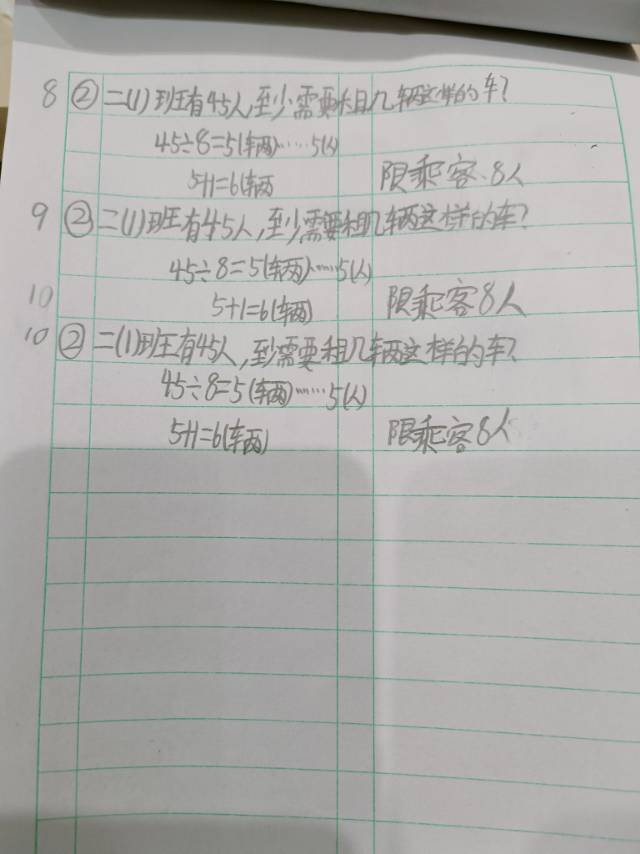 8 ② 二(1)班有45人,至少需要租几辆这样的车?
45÷8=5(辆)……5(人)
5+1=6(辆
限乘客.8人
9 ② 二(1)班有45人,至少需要租几辆这样的车?
45÷8=5(辆)……5(人)
10 5+1=6(辆) 限乘客8人
10 ② 二(1)班有45人,到需要租几辆这样的车?
45÷8=5(辆)……5(人)
5+1=6(辆) 限乘客8人